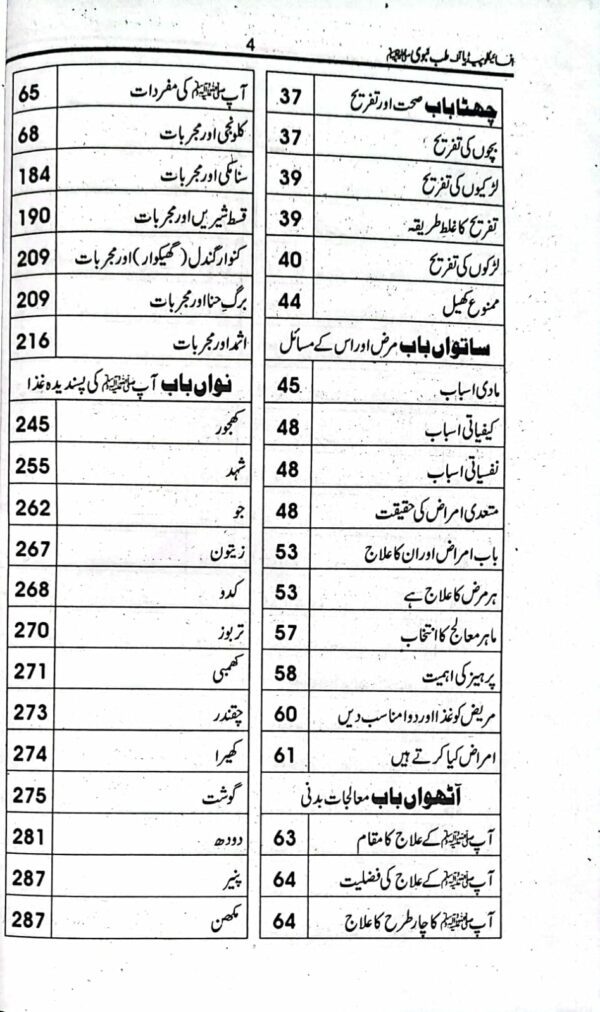 4
انسائیکلوپیڈیا آف طب نبوی ﷺ
چھٹا باب صحت اور تفریح 37
بچوں کی تفریح 37
لڑکیوں کی تفریح 39
تفریح کا غلط طریقہ 39
لڑکوں کی تفریح 40
ممنوع کھیل 44
ساتواں باب مرض اور اس کے مسائل
مادی اسباب 45
کیفیاتی اسباب 48
نفسیاتی اسباب 48
متعدی امراض کی حقیقت 48
باب امراض اور ان کا علاج 53
ہر مرض کا علاج ہے 53
ماہر معالج کا انتخاب 57
پرہیز کی اہمیت 58
مریض کو غذا اور دوا مناسب دیں 60
امراض کیا کرتے ہیں 61
آٹھواں باب معالجات بدنی
آپ ﷺ کے علاج کا مقام 63
آپ ﷺ کے علاج کی فضلیت 64
آپ ﷺ کا چار طرح کا علاج 64
آپ ﷺ کی مفردات 65
کلونجی اور مجربات 68
سنا مکی اور مجربات 184
قسط شیریں اور مجربات 190
کنوار گندل (گھیکوار) اور مجربات 209
برگ حنا اور مجربات 209
اثمد اور مجربات 216
نواں باب آپ ﷺ کی پسندیدہ غذا
کھجور 245
شہد 255
جو 262
زیتون 267
کدو 268
تربوز 270
کھمبی 271
چقندر 273
کھیرا 274
گوشت 275
دودھ 281
پنیر 287
مکھن 287